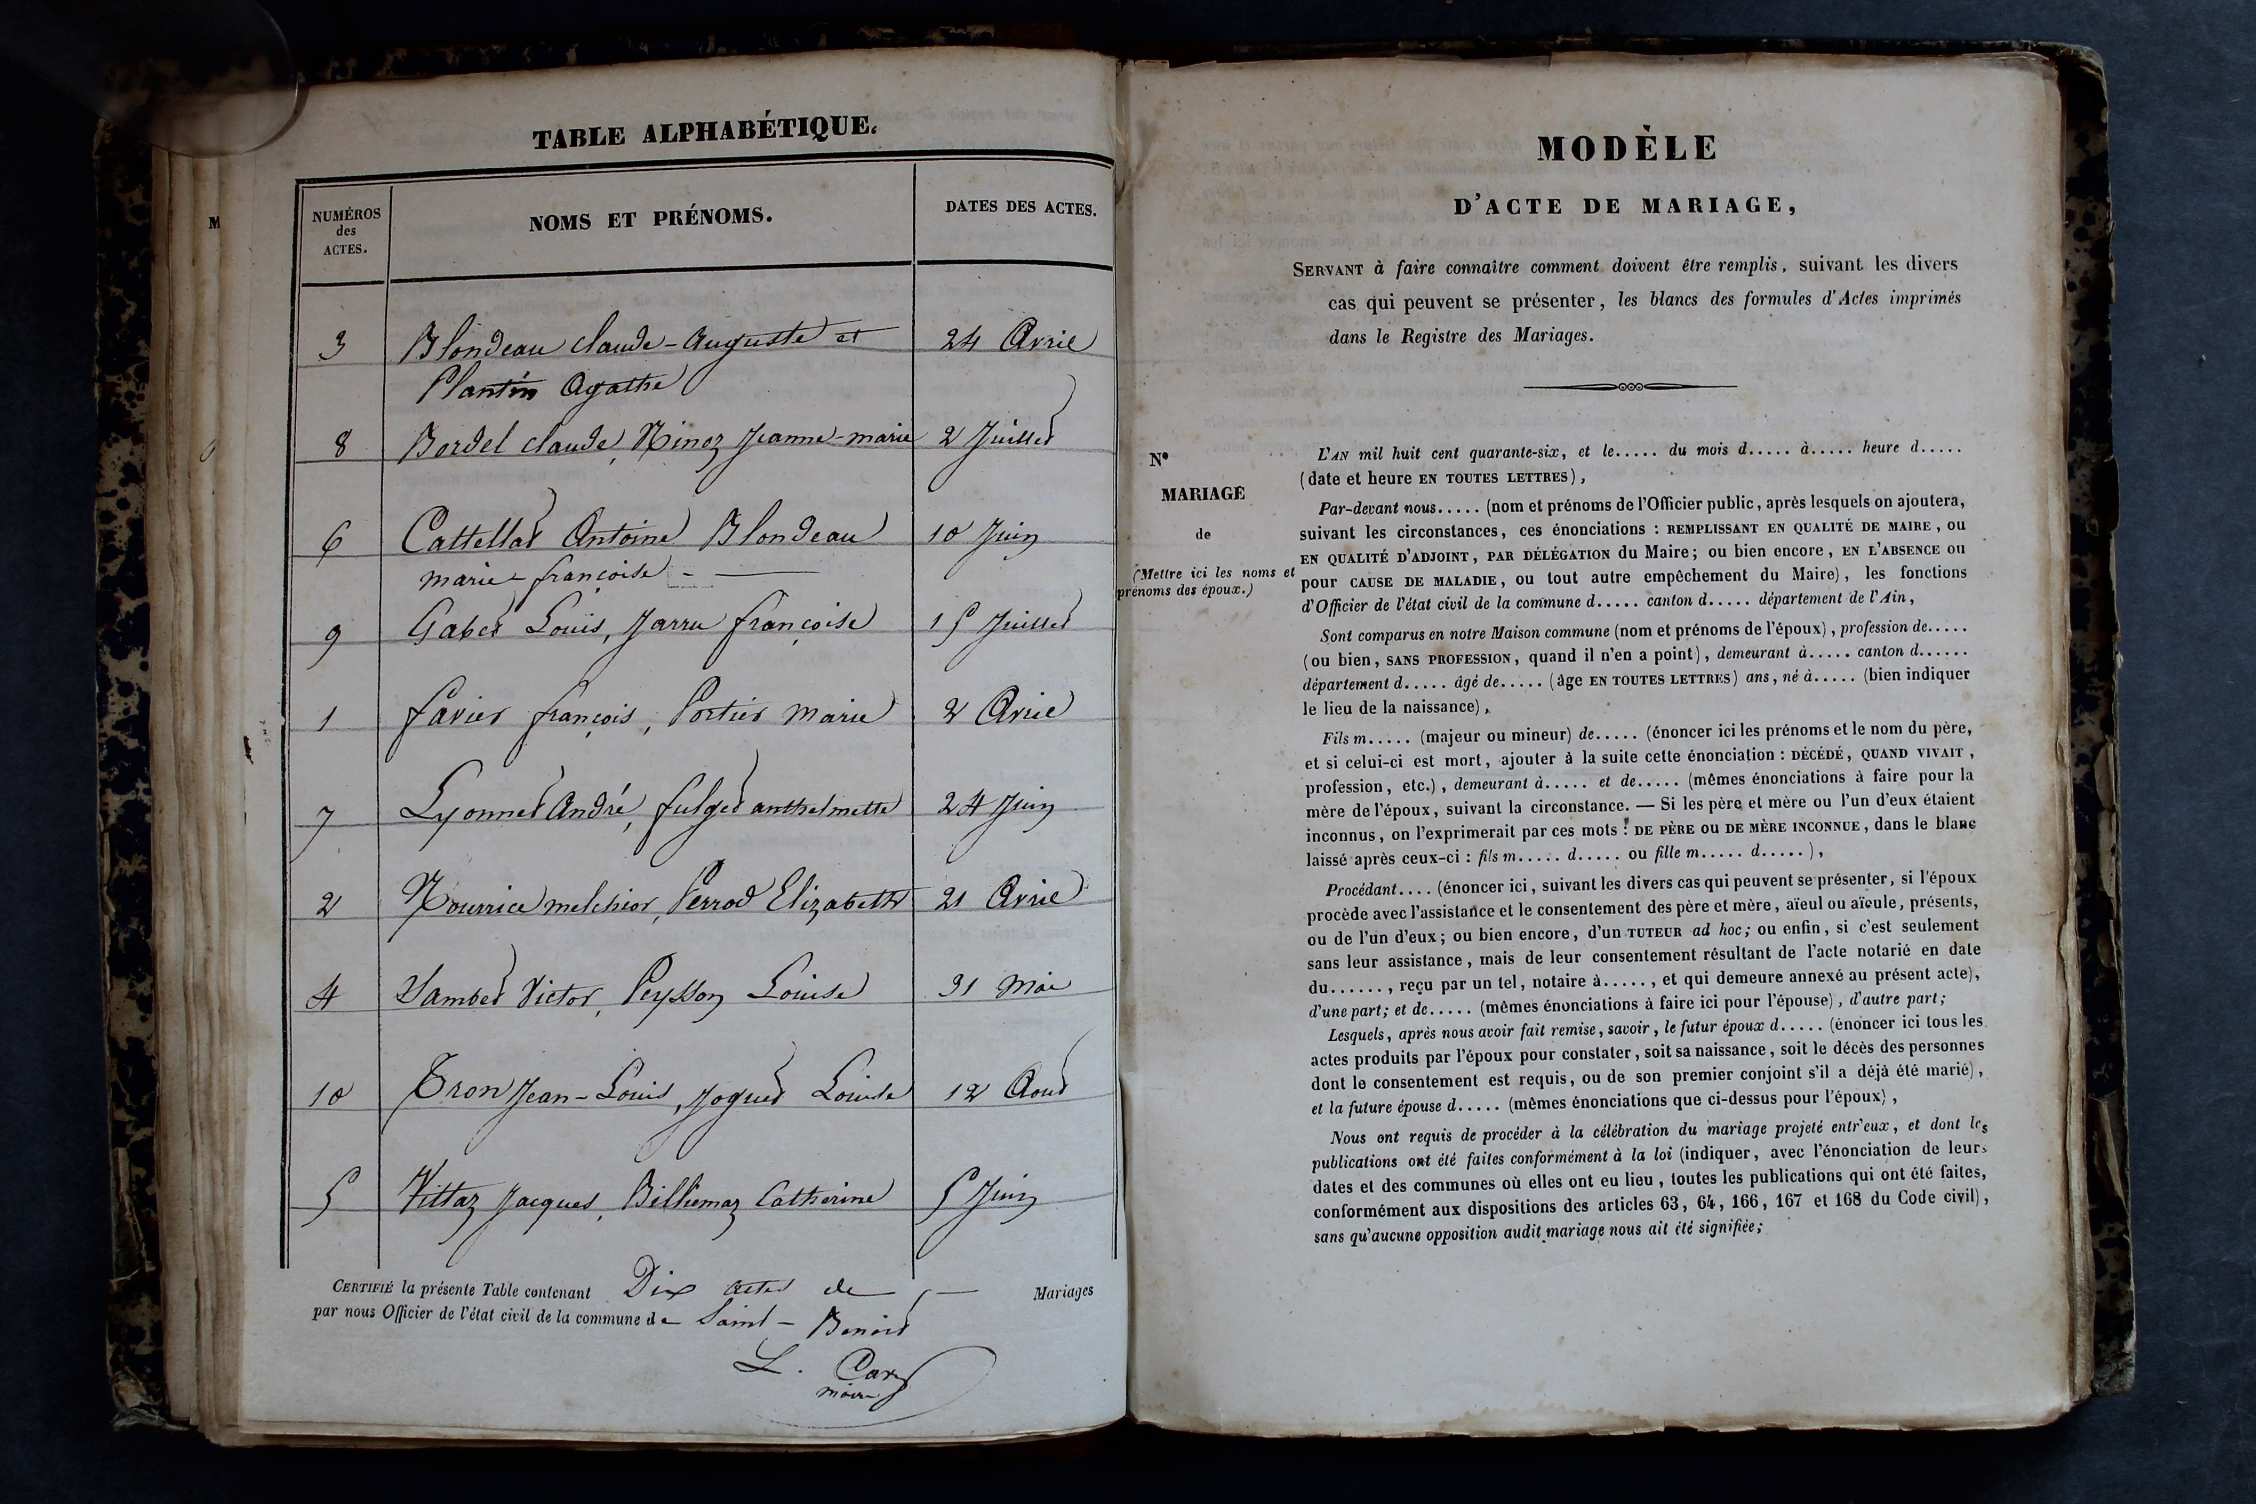 TABLE ALPHABÉTIQUE.
NUMÉROS
des
ACTES.
NOMS ET PRÉNOMS.
DATES DES ACTES.
3 Blondeau claude-Auguste et 24 Avril
Plantin Agathe
8 Bordel claude, Ninoz Jeanne-marie 2 Juillet
6 Cattellat Antoine Blondeau 10 Juin
marie-françoise
9 Gabet Louis, Jarru françoise 15 Juillet
1 favier françois, Portier marie 2 Avril
7 Lyonnet André, fulget anthelmette 24 Juin
2 Nourrice melchior, Perrod Elizabeth 21 Avril
4 Sambet Victor, Peysson Louise 31 Mai
10 Tron Jean-Louis, Joguet Louise 12 Aout
5 Vittaz Jacques, Billiemaz Catherine 5 Juin
CERTIFIÉ la présente Table contenant Dix actes de Mariages
par nous Officier de l'état civil de la commune de Saint-Benoit
L.
maire
MODÈLE
D'ACTE DE MARIAGE,
SERVANT à faire connaître comment doivent être remplis, suivant les divers
cas qui peuvent se présenter, les blancs des formules d'Actes imprimés
dans le Registre des Mariages.
N°
MARIAGE
de
(Mettre ici les noms et
prénoms des époux.)
L'AN mil huit cent quarante-six, et le..... du mois d..... à..... heure d.....
(date et heure EN TOUTES LETTRES),
Par-devant nous..... (nom et prénoms de l'Officier public, après lesquels on ajoutera,
suivant les circonstances, ces énonciations : REMPLISSANT EN QUALITÉ DE MAIRE, ou
EN QUALITÉ D'ADJOINT, PAR DÉLÉGATION du Maire; ou bien encore, EN L'ABSENCE ou
pour CAUSE DE MALADIE, ou tout autre empêchement du Maire), les fonctions
d'Officier de l'état civil de la commune d..... canton d..... département de l'Ain,
Sont comparus en notre Maison commune (nom et prénoms de l'époux), profession de.....
(ou bien, SANS PROFESSION, quand il n'en a point), demeurant à..... canton d......
département d..... âgé de..... (âge EN TOUTES LETTRES) ans, né à..... (bien indiquer
le lieu de la naissance),
Fils m..... (majeur ou mineur) de..... (énoncer ici les prénoms et le nom du père,
et si celui-ci est mort, ajouter à la suite cette énonciation : DÉCÉDÉ, QUAND VIVAIT,
profession, etc.), demeurant à..... et de..... (mêmes énonciations à faire pour la
mère de l'époux, suivant la circonstance. — Si les père et mère ou l'un d'eux étaient
inconnus, on l'exprimerait par ces mots : DE PÈRE OU DE MÈRE INCONNUE, dans le blanc
laissé après ceux-ci : fils m..... d..... ou fille m..... d.....),
Procédant.... (énoncer ici, suivant les divers cas qui peuvent se présenter, si l'époux
procède avec l'assistance et le consentement des père et mère, aïeul ou aïeule, présents,
ou de l'un d'eux; ou bien encore, d'un TUTEUR ad hoc; ou enfin, si c'est seulement
sans leur assistance, mais de leur consentement résultant de l'acte notarié en date
du......, reçu par un tel, notaire à....., et qui demeure annexé au présent acte),
d'une part; et de..... (mêmes énonciations à faire ici pour l'épouse), d'autre part;
Lesquels, après nous avoir fait remise, savoir, le futur époux d..... (énoncer ici tous les
actes produits par l'époux pour constater, soit sa naissance, soit le décès des personnes
dont le consentement est requis, ou de son premier conjoint s'il a déjà été marié),
et la future épouse d..... (mêmes énonciations que ci-dessus pour l'époux),
Nous ont requis de procéder à la célébration du mariage projeté entr'eux, et dont les
publications ont été faites conformément à la loi (indiquer, avec l'énonciation de leurs
dates et des communes où elles ont eu lieu, toutes les publications qui ont été faites,
conformément aux dispositions des articles 63, 64, 166, 167 et 168 du Code civil),
sans qu'aucune opposition audit mariage nous ait été signifiée;